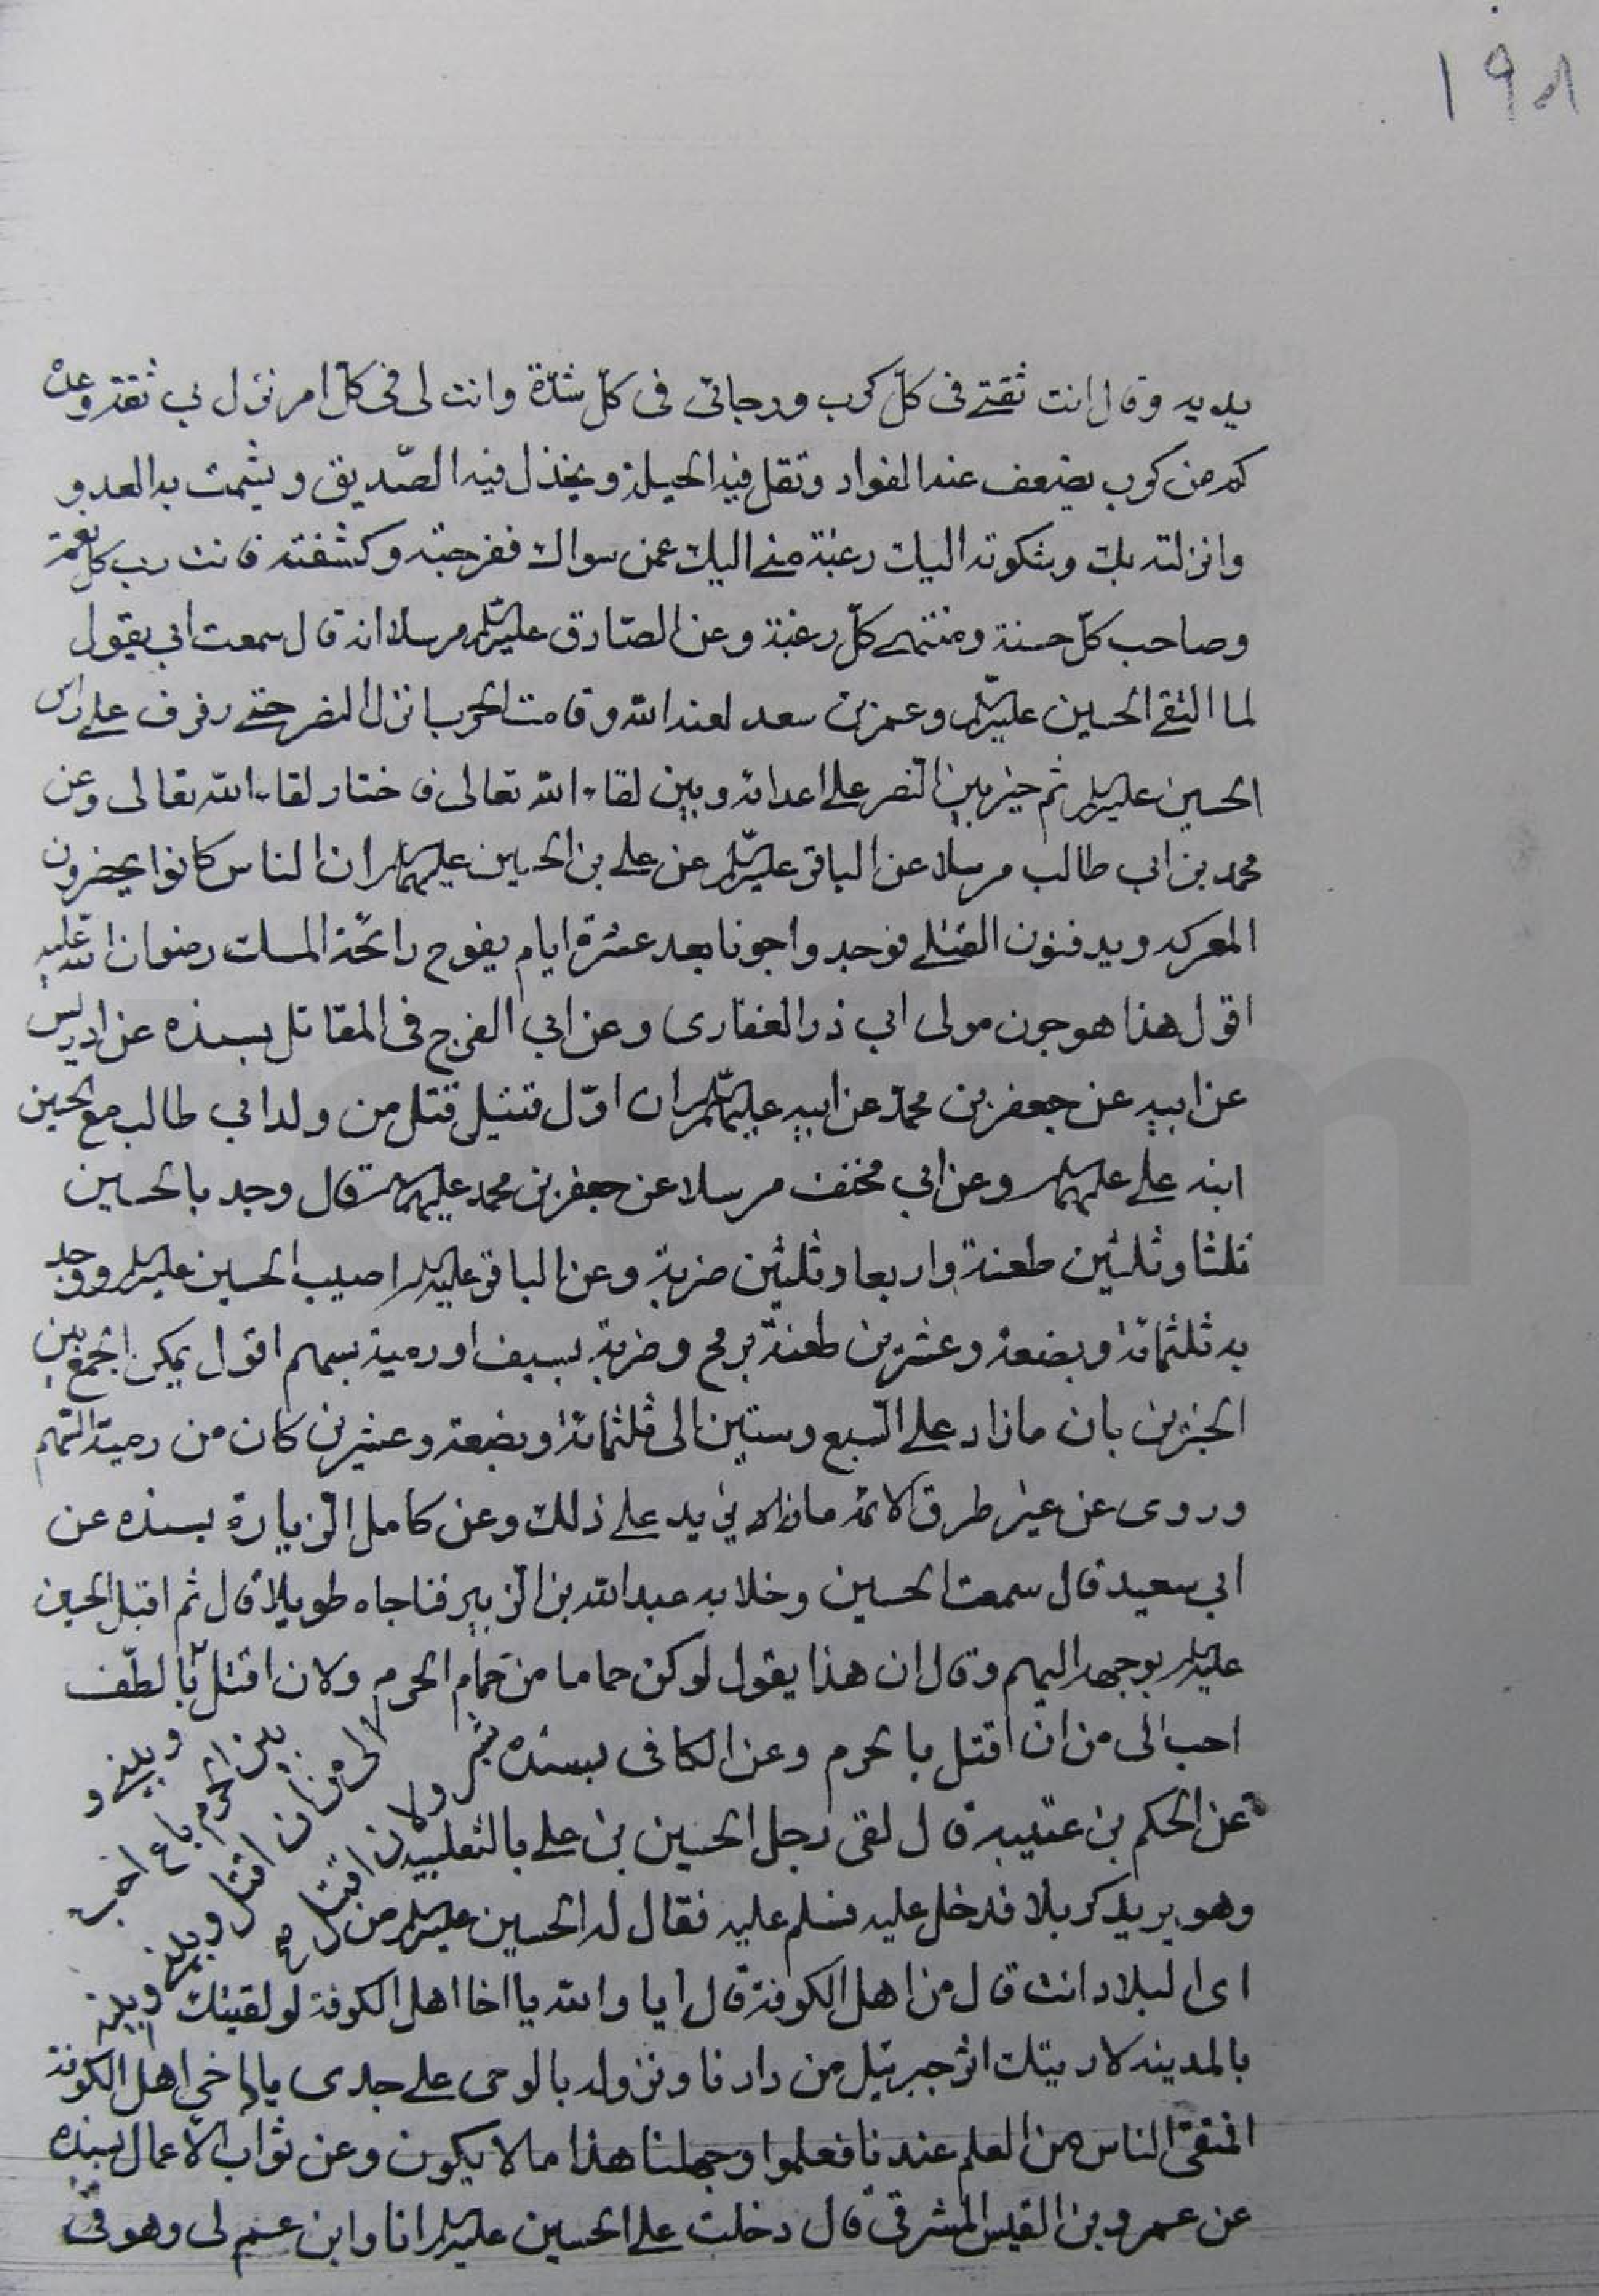 ١٩٨
يديه وقال انت ثقتے فى كلّ كرب ورجائى فى كلّ شدّة وانت لى فى كلّ امر نزل بى ثقة وعدة
كم من كرب يضعف عنه الفواد وتقل فيه الحيلة ويخذل فيه الصّديق ويشمت به العدو
وانزلته بك وشكوته اليك رغبة منے اليك عمن سواك ففرجته وكشفته فانت رب كل نعمة
وصاحب كلّ حسنة ومنتهے كلّ رغبة وعن الصّادق عليه السّلم مرسلا انه قال سمعت ابى يقول
لما التقے الحسين عليه السّلم وعمر بن سعد لعنه الله وقامت الحرب انزل النصر حتے رفرف علے راس
الحسين عليه السلم ثم خيّر بين النصر علے اعدائه وبين لقاء الله تعالى فاختار لقاء الله تعالى وعن
محمد بن ابى طالب مرسلا عن الباقر عليه السّلم عن علے بن الحسين عليهما السلم ان الناس كانوا يحضرون
المعركه ويدفنون القتلے فوجدوا جونا بعد عشرة ايام يفوح رائحة المسك رضوان الله عليه
اقول هذا هو جون مولى ابى ذر الغفارى وعن ابى الفرج فى المقاتل بسنده عن ادريس
عن ابيه عن جعفر بن محمد عن ابيه عليهم السّلم ان اوّل قتيل قتل من ولد ابى طالب مع الحسين
ابنه علے عليهما السلم وعن ابى مخنف مرسلا عن جعفر بن محمد عليهما السلم قال وجد بالحسين
ثلثا وثلثين طعنة واربعا وثلثين ضربة وعن الباقر عليه السلم اصيب الحسين عليه السلم ووجد
به ثلثمائة وبضعة وعشرين طعنة برمح وضربة بسيف او رمية بسهم اقول يمكن الجمع بين
الخبرين بان ما زاد علے السبع وستين الى ثلثمائة وبضعة وعشرين كان من رمية السّهم
وروى عن غير طرق الائمة ما يزيد علے ذلك وعن كامل الزيارة بسنده عن
ابى سعيد قال سمعت الحسين وخلا به عبد الله بن الزبير فناجاه طويلا قال ثم اقبل الحسين
عليه السلم بوجهه اليهم وقال ان هذا يقول لى كن حماما من حمام الحرم ولان اقتل بالطّف
احب الى من ان اقتل بالحرم وعن الكافى بسنده
وبينے و
بين الحرم باع احب
الى من ان اقتل وبينے وبينه
شبر ولان اقتل
عن الحكم بن عتيبه قال لقى رجل الحسين بن علے بالثعلبيه
وهو يريد كربلا فدخل عليه فسلم عليه فقال له الحسين عليه السلم من
اى البلاد انت قال من اهل الكوفة قال اما والله يا اخا اهل الكوفة لو لقيتك
بالمدينه لاريتك اثر جبرئيل من دارنا ونزوله بالوحى علے جدى يا اخى اهل الكوفة
افمستقى الناس من العلم عندنا فعلموا وجهلنا هذا ما لا يكون وعن ثواب الاعمال بسنده
عن عمرو بن القيس المشرقى قال دخلت علے الحسين عليه السلم انا وابن عم لى وهو فى